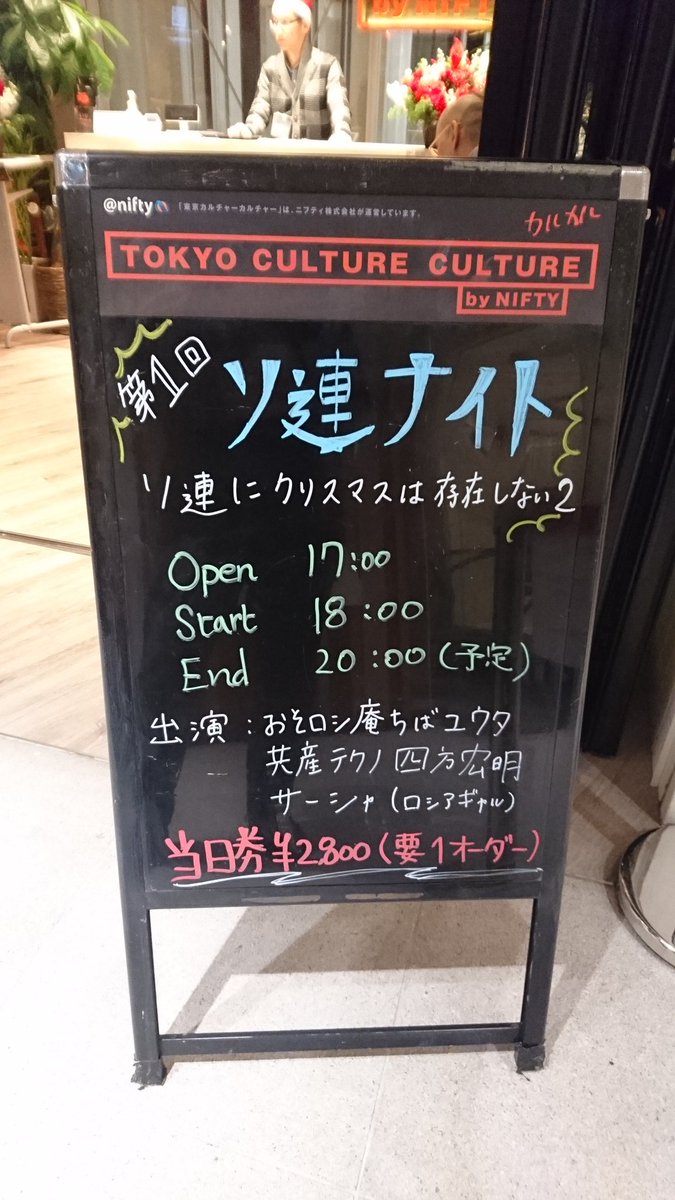 by NIFTY
@nifty 「東京カルチャーカルチャー」は、ニフティ株式会社が運営しています。
カルカル
TOKYO CULTURE CULTURE
by NIFTY
第1回
ソ連ナイト
ソ連にクリスマスは存在しない2
Open 17:00
Start 18:00
End 20:00(予定)
出演:おそロシ庵ちばユウタ
共産テクノ 四方宏明
サーシャ(ロシアギャル)
当日券¥2800(要1オーダー)